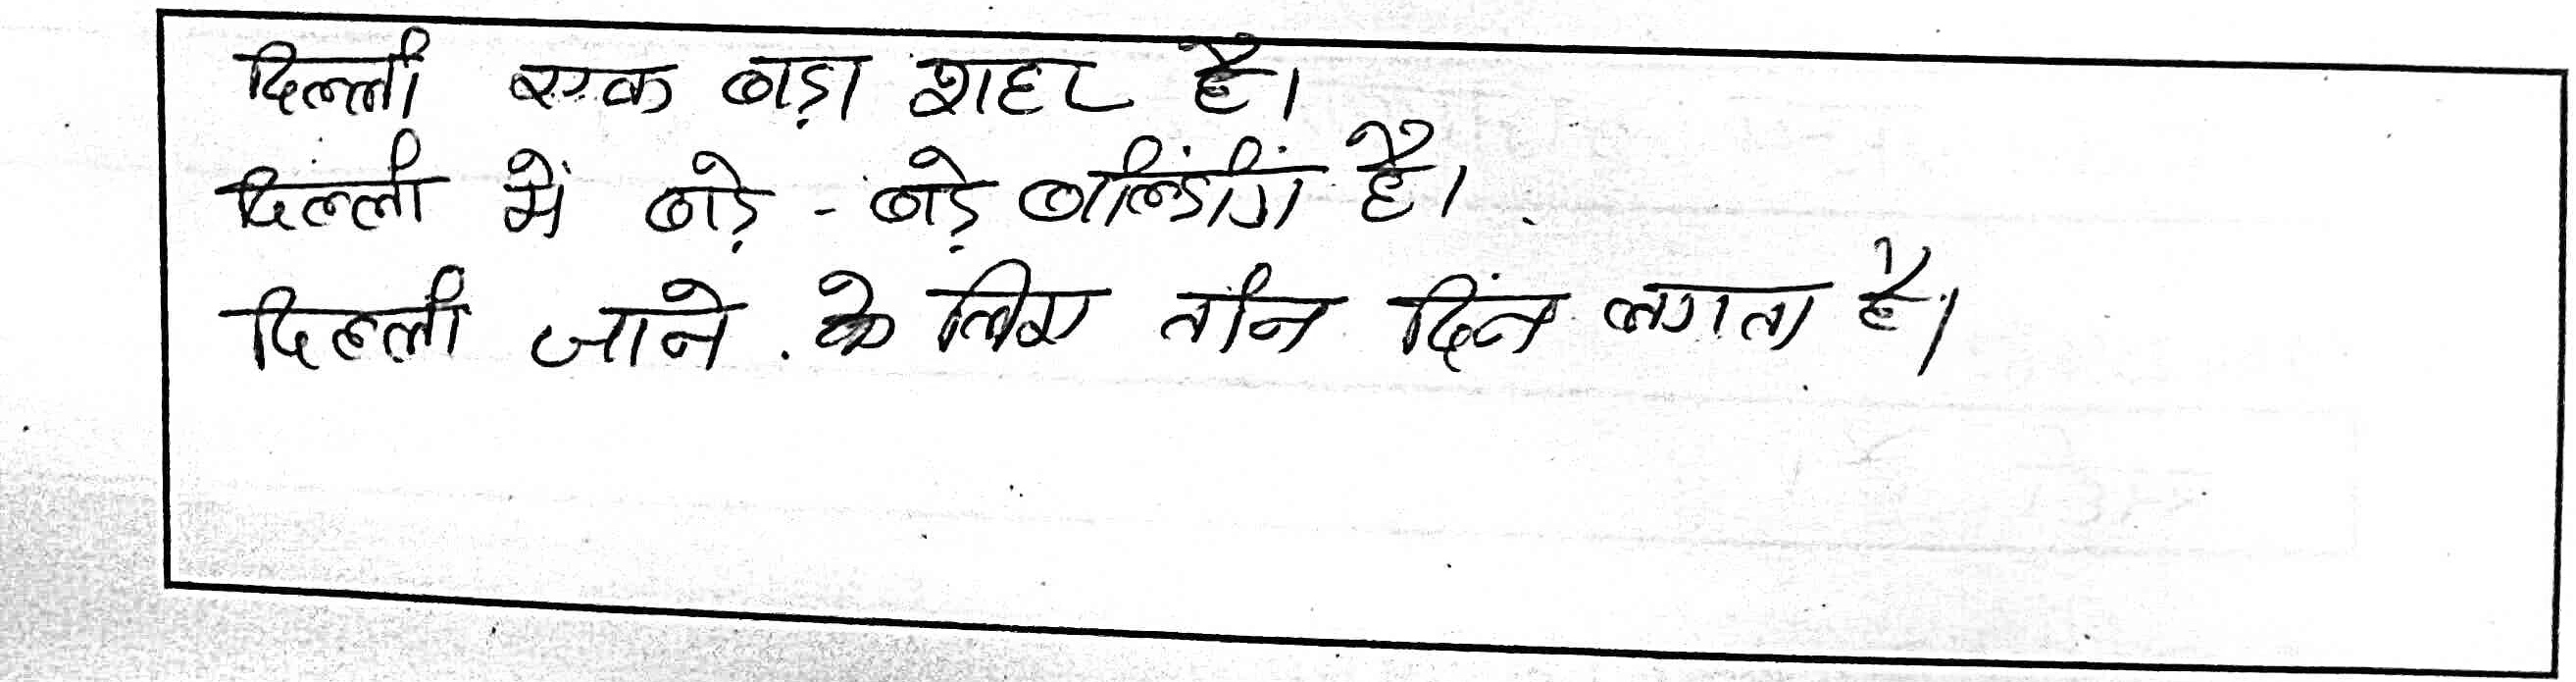 दिल्ली एक बड़ा शहर है।
दिल्ली में बड़े - बड़े बिल्डींगं है।
दिल्ली जाने के लिए तीन दिन लगता है।